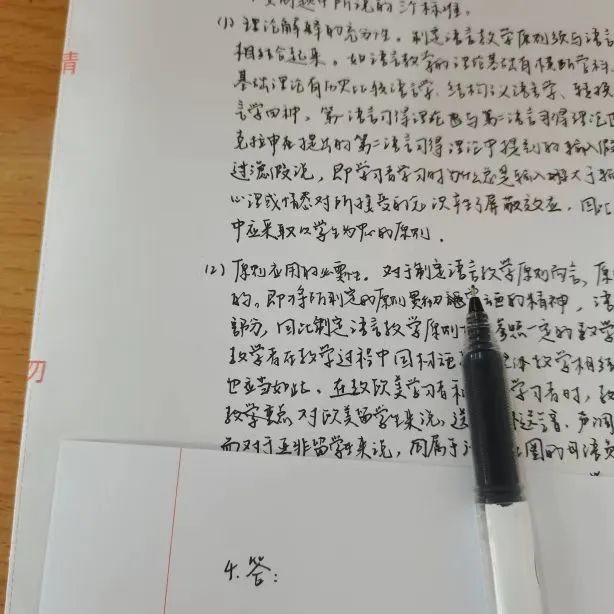 问题中所说的六个标准。
(1) 理论解释的充分性。制定语言教学原则须与语言
相结合起来。如语言教学的理论基础有横断学科、
基础理论有历史比较语言学、结构主义语言学、转换
言学四种,第一语言习得理论也与第二语言习得理论
克拉申在提出的第二语言习得理论中提到的输入假
过滤假说,即学习者学习时为什么总是输入大于输
心理或情感对所接受的知识产生了屏蔽效应,因此
中应采取以学生为中心的原则.
(2) 原则应用的必要性。对于制定语言教学原则而言,原
的。即将所制定的原则贯彻 的精神,语
部分,因此制定语言教学原则 参照一定的教学
教学者在教学过程中因材 具体教学相结
也应当如此。在教欧美学习者和 学习者时,教
教学重点 对欧美留学生来说,送 送音、声调
而对于亚非留学生来说,同属于 圈的日语
4. 答:
请
勿